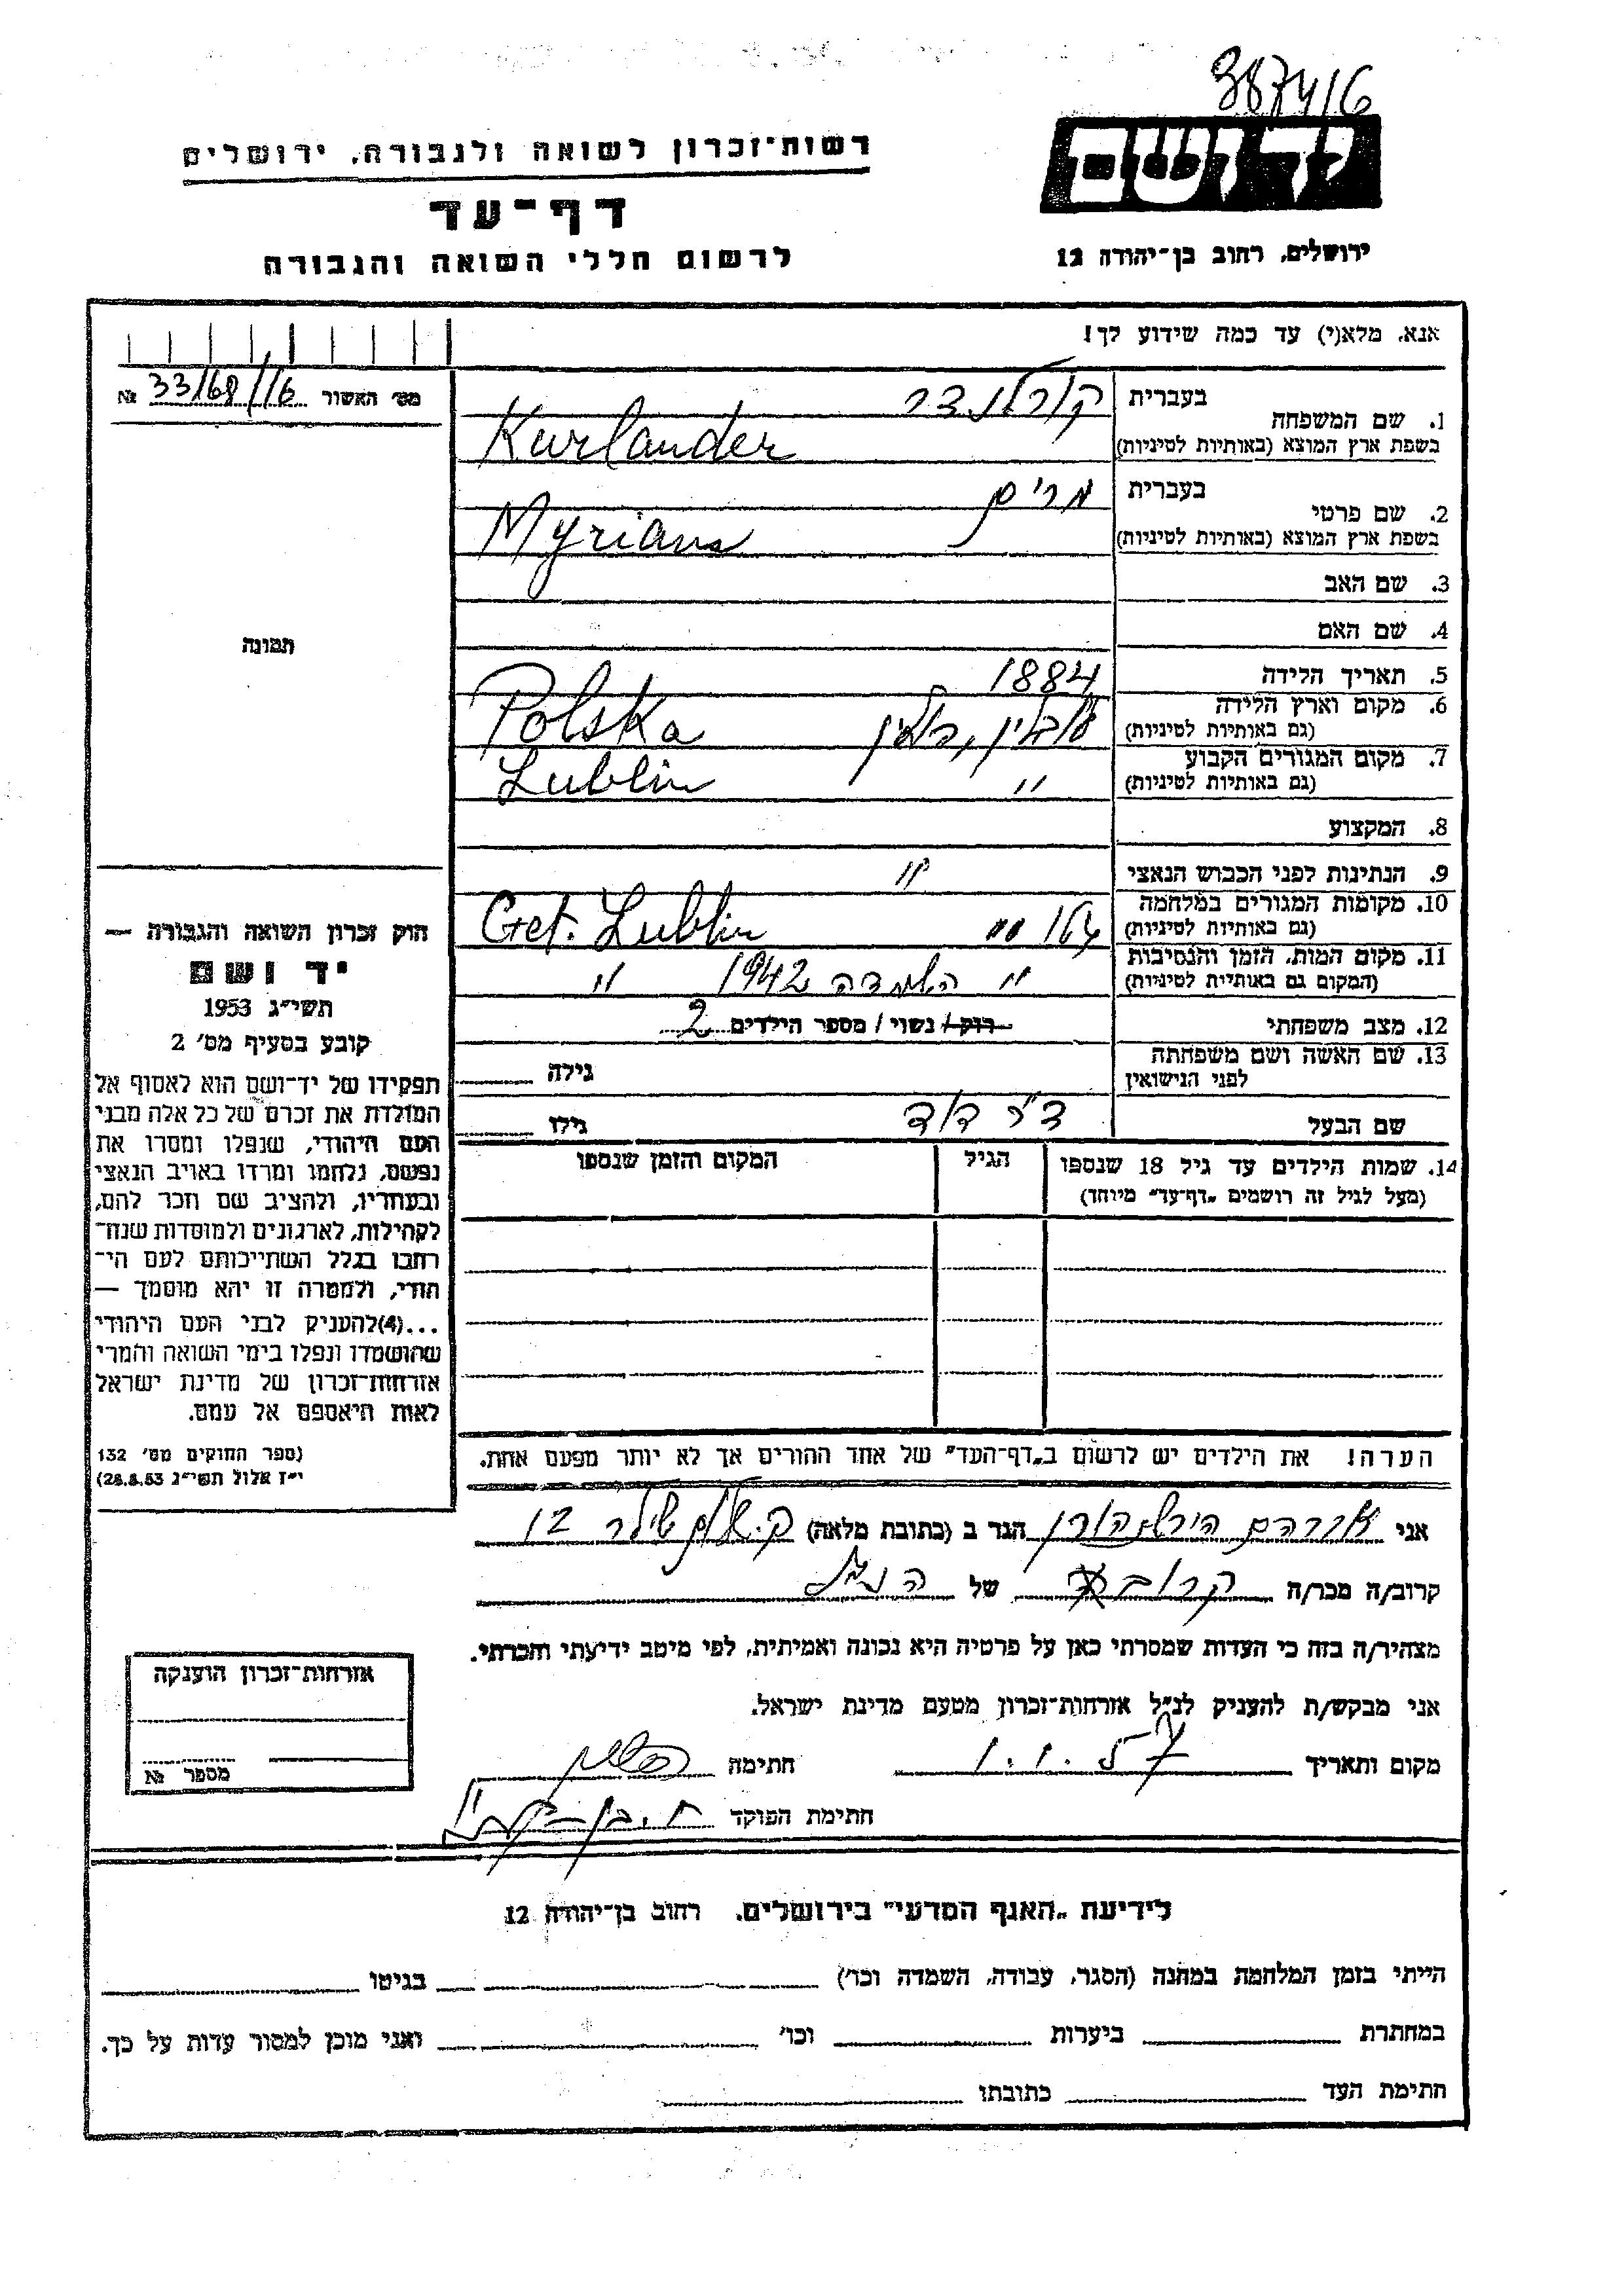 38741/6
יד ושם
רשות־זכרון לשואה ולגבורה, ירושלים
דף־עד
לרשום חללי השואה והגבורה
ירושלים, רחוב בן־יהודה 12
אנא, מלא(י) עד כמה שידוע לך!
מס׳ האשור 33/68//6 №
1. שם המשפחה
בעברית קורלנדר
בשפת ארץ המוצא (באותיות לטיניות) Kurlander
2. שם פרטי
בעברית מרים
בשפת ארץ המוצא (באותיות לטיניות)
3. שם האב
4. שם האם
תמונה
5. תאריך הלידה 1884
6. מקום וארץ הלידה לובלין, פולין Polska
(גם באותיות לטיניות)
7. מקום המגורים הקבוע " Lublin
(גם באותיות לטיניות)
8. המקצוע
9. הנתינות לפני הכבוש הנאצי "
10. מקומות המגורים במלחמה Get. Lublin
(גם באותיות לטיניות)
11. מקום המות, הזמן והנסיבות " השמדה 1942 "
(המקום גם באותיות לטיניות)
12. מצב משפחתי רוק / נשוי / מספר הילדים 2
13. שם האשה ושם משפחתה
לפני הנישואין גילה
שם הבעל ד"ר דוד גילו
14. שמות הילדים עד גיל 18 שנספו הגיל המקום והזמן שנספו
(מעל לגיל זה רושמים „דף־עד״ מיוחד)
חוק זכרון השואה והגבורה —
יד ושם
תשי״ג 1953
קובע בסעיף מס׳ 2
תפקידו של יד־ושם הוא לאסוף אל
המולדת את זכרם של כל אלה מבני
העם היהודי, שנפלו ומסרו את
נפשם, נלחמו ומרדו באויב הנאצי
ובעוזריו, ולהציב שם וזכר להם,
לקהילות, לארגונים ולמוסדות שנח־
רבו בגלל השתייכותם לעם הי־
הודי, ולמטרה זו יהא מוסמך —
...(4)להעניק לבני העם היהודי
שהושמדו ונפלו בימי השואה והמרי
אזרחות־זכרון של מדינת ישראל
לאות היאספם אל עמם.
(ספר החוקים מס׳ 132
י״ז אלול תשי״ג 28.8.53)
הערה! את הילדים יש לרשום ב„דף־העד״ של אחד ההורים אך לא יותר מפעם אחת.
אני אברהם הירשהורן הגר ב (כתובת מלאה) ק. שלום 12
קרוב/ה מכר/ה קרובה של הנ"ל
מצהיר/ה בזה כי העדות שמסרתי כאן על פרטיה היא נכונה ואמיתית, לפי מיטב ידיעתי והכרתי.
אני מבקש/ת להעניק לנ״ל אזרחות־זכרון מטעם מדינת ישראל.
מקום ותאריך 1.1.57 חתימה
חתימת הפוקד
אזרחות־זכרון הוענקה
מספר №
לידיעת „האגף המדעי״ בירושלים, רחוב בן־יהודה 12
הייתי בזמן המלחמה במחנה (הסגר, עבודה, השמדה וכו׳) בגיטו
במחתרת ביערות וכו׳ ואני מוכן למסור עדות על כך.
חתימת העד כתובתו